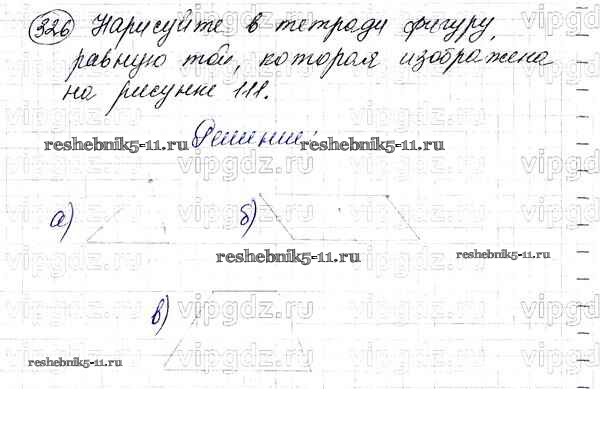 326 Нарисуйте в тетради фигуру,
равную той, которая изображена
на рисунке 111.
Решение:
reshebnik5-11.ru reshebnik5-11.ru
а) б)
reshebnik5-11.ru reshebnik5-11.ru
в)
reshebnik5-11.ru
vipgdz.ru vipgdz.ru vipgdz.ru